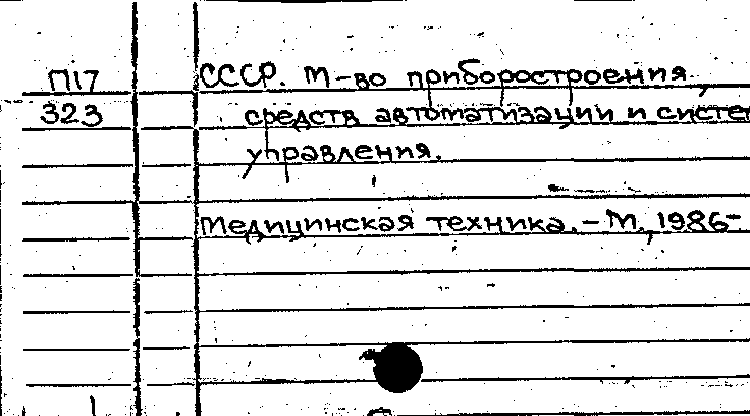 П17 СССР. М-во приборостроения,
323 средств автоматизации и систем
управления.
Медицинская техника. - М., 1986-